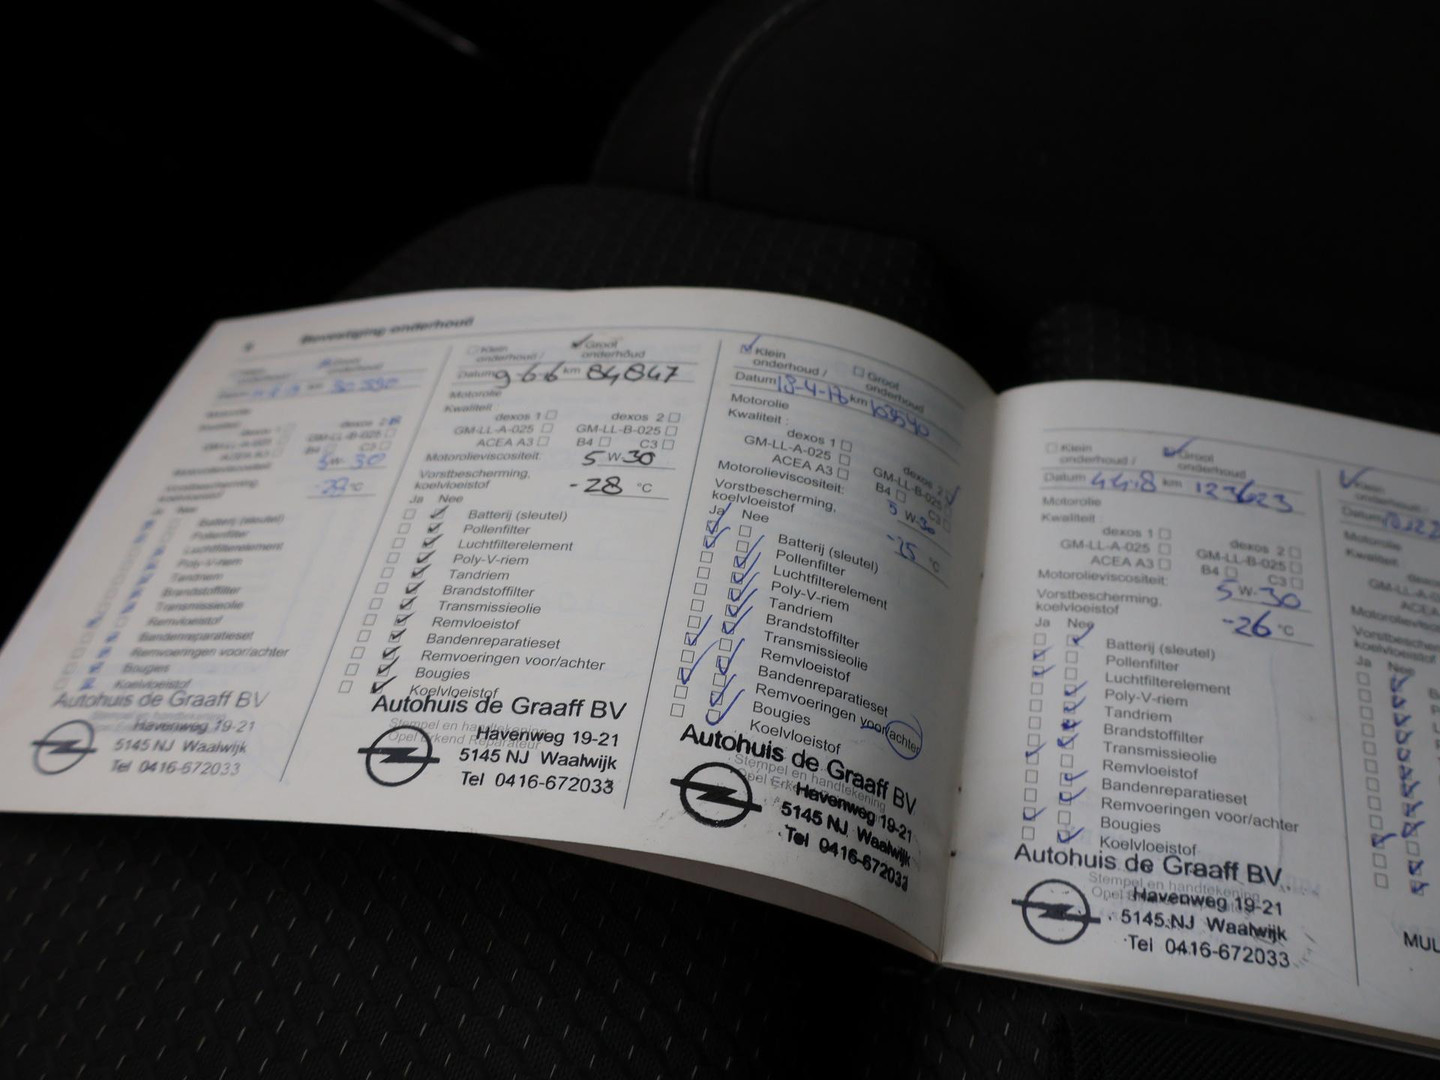 Bevestiging onderhoud
Groot
onderhoud
km
dexos 2
GM-LL-B-025
B4 C3
5 W-30
°C
Batterij (sleutel)
Pollenfilter
Luchtfilterelement
Poly-V-riem
Tandriem
Brandstoffilter
Transmissieolie
Remvloeistof
Bandenreparatieset
Remvoeringen voor/achter
Bougies
Koelvloeistof
Autohuis de Graaff BV
Havenweg 19-21
5145 NJ Waalwijk
Tel 0416-672033
Klein Groot
onderhoud / onderhoud
Datum 9-6-6 km 84847
Motorolie
Kwaliteit
dexos 1 dexos 2
GM-LL-A-025 GM-LL-B-025
ACEA A3 B4 C3
Motorolieviscositeit: 5 W-30
Vorstbescherming,
koelvloeistof -28 °C
Ja Nee
Batterij (sleutel)
Pollenfilter
Luchtfilterelement
Poly-V-riem
Tandriem
Brandstoffilter
Transmissieolie
Remvloeistof
Bandenreparatieset
Remvoeringen voor/achter
Bougies
Koelvloeistof
Autohuis de Graaff BV
Stempel en handtekening
Opel Erkend Reparateur
Havenweg 19-21
5145 NJ Waalwijk
Tel 0416-672033
Klein Groot
onderhoud / onderhoud
Datum km
Motorolie
Kwaliteit :
dexos 1 dexos 2
GM-LL-A-025 GM-LL-B-025
ACEA A3 B4 C3
Motorolieviscositeit: 5 W-30
Vorstbescherming,
koelvloeistof -25 °C
Ja Nee
Batterij (sleutel)
Pollenfilter
Luchtfilterelement
Poly-V-riem
Tandriem
Brandstoffilter
Transmissieolie
Remvloeistof
Bandenreparatieset
Remvoeringen voor/achter
Bougies
Koelvloeistof
Autohuis de Graaff BV
Stempel en handtekening
Havenweg 19-21
5145 NJ Waalwijk
Tel 0416-672033
Klein Groot
onderhoud / onderhoud
Datum 4-4-18 km 123623
Motorolie
Kwaliteit :
dexos 1 dexos 2
GM-LL-A-025 GM-LL-B-025
ACEA A3 B4 C3
Motorolieviscositeit: 5 W-30
Vorstbescherming,
koelvloeistof -26 °C
Ja Nee
Batterij (sleutel)
Pollenfilter
Luchtfilterelement
Poly-V-riem
Tandriem
Brandstoffilter
Transmissieolie
Remvloeistof
Bandenreparatieset
Remvoeringen voor/achter
Bougies
Koelvloeistof
Autohuis de Graaff BV
Stempel en handtekening
Havenweg 19-21
5145 NJ Waalwijk
Tel 0416-672033
Datum
Motorolie
Kwaliteit
Ja Nee
MUL